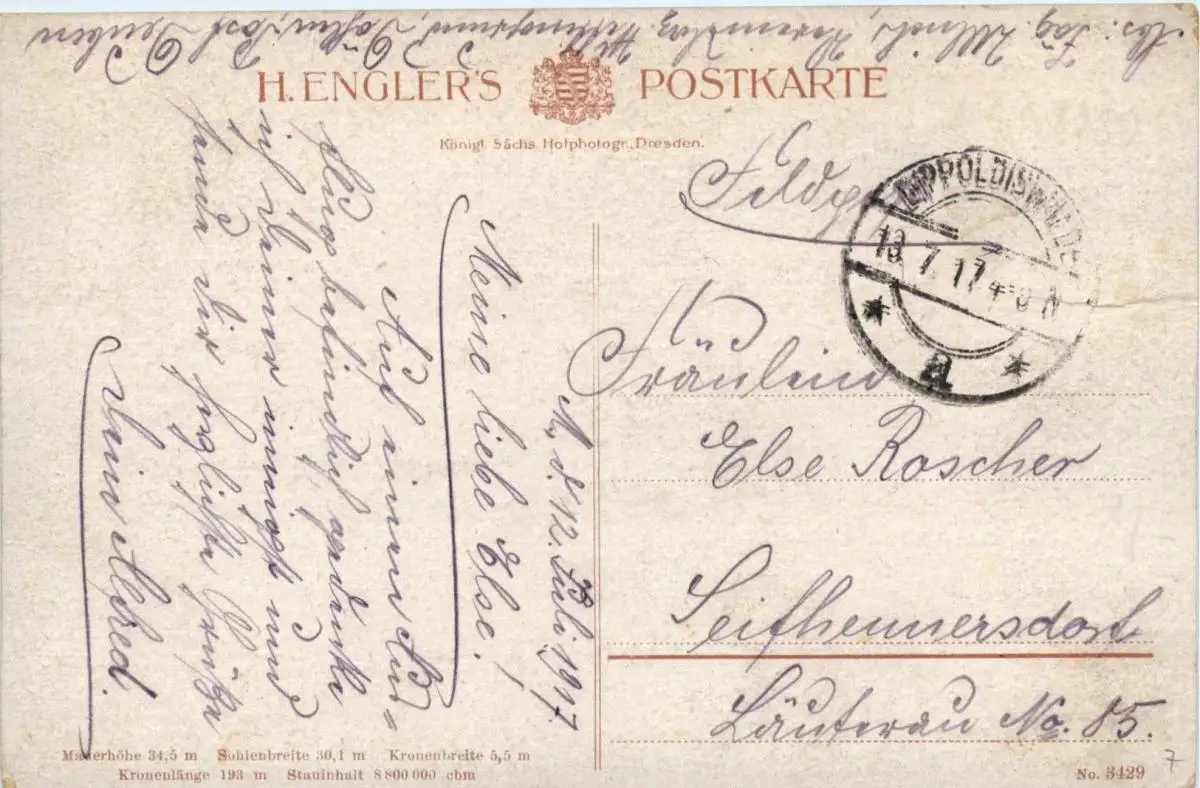 Abs: Jäg. Ullrich, Vereinslaz.
Döhlen, Post Deuben
H. ENGLER'S POSTKARTE
Königl. Sächs. Hofphotogr., Dresden.
Feldp
DIPPOLDISWALDE
13.7.17 4-8 N
a
Fräulein
Else Roscher
Seifhennersdorf
Läuterau No. 85.
d. 12. Juli 1917
Meine liebe Else!
Auf einem Aus=
flug befindlich gedenke
ich Deiner innigst und
sende Dir herzlichste Grüße
Dein Alfred.
Mauerhöhe 34,5 m Sohlenbreite 30,1 m Kronenbreite 5,5 m
Kronenlänge 193 m Stauinhalt 8 800 000 cbm
No. 3429
7